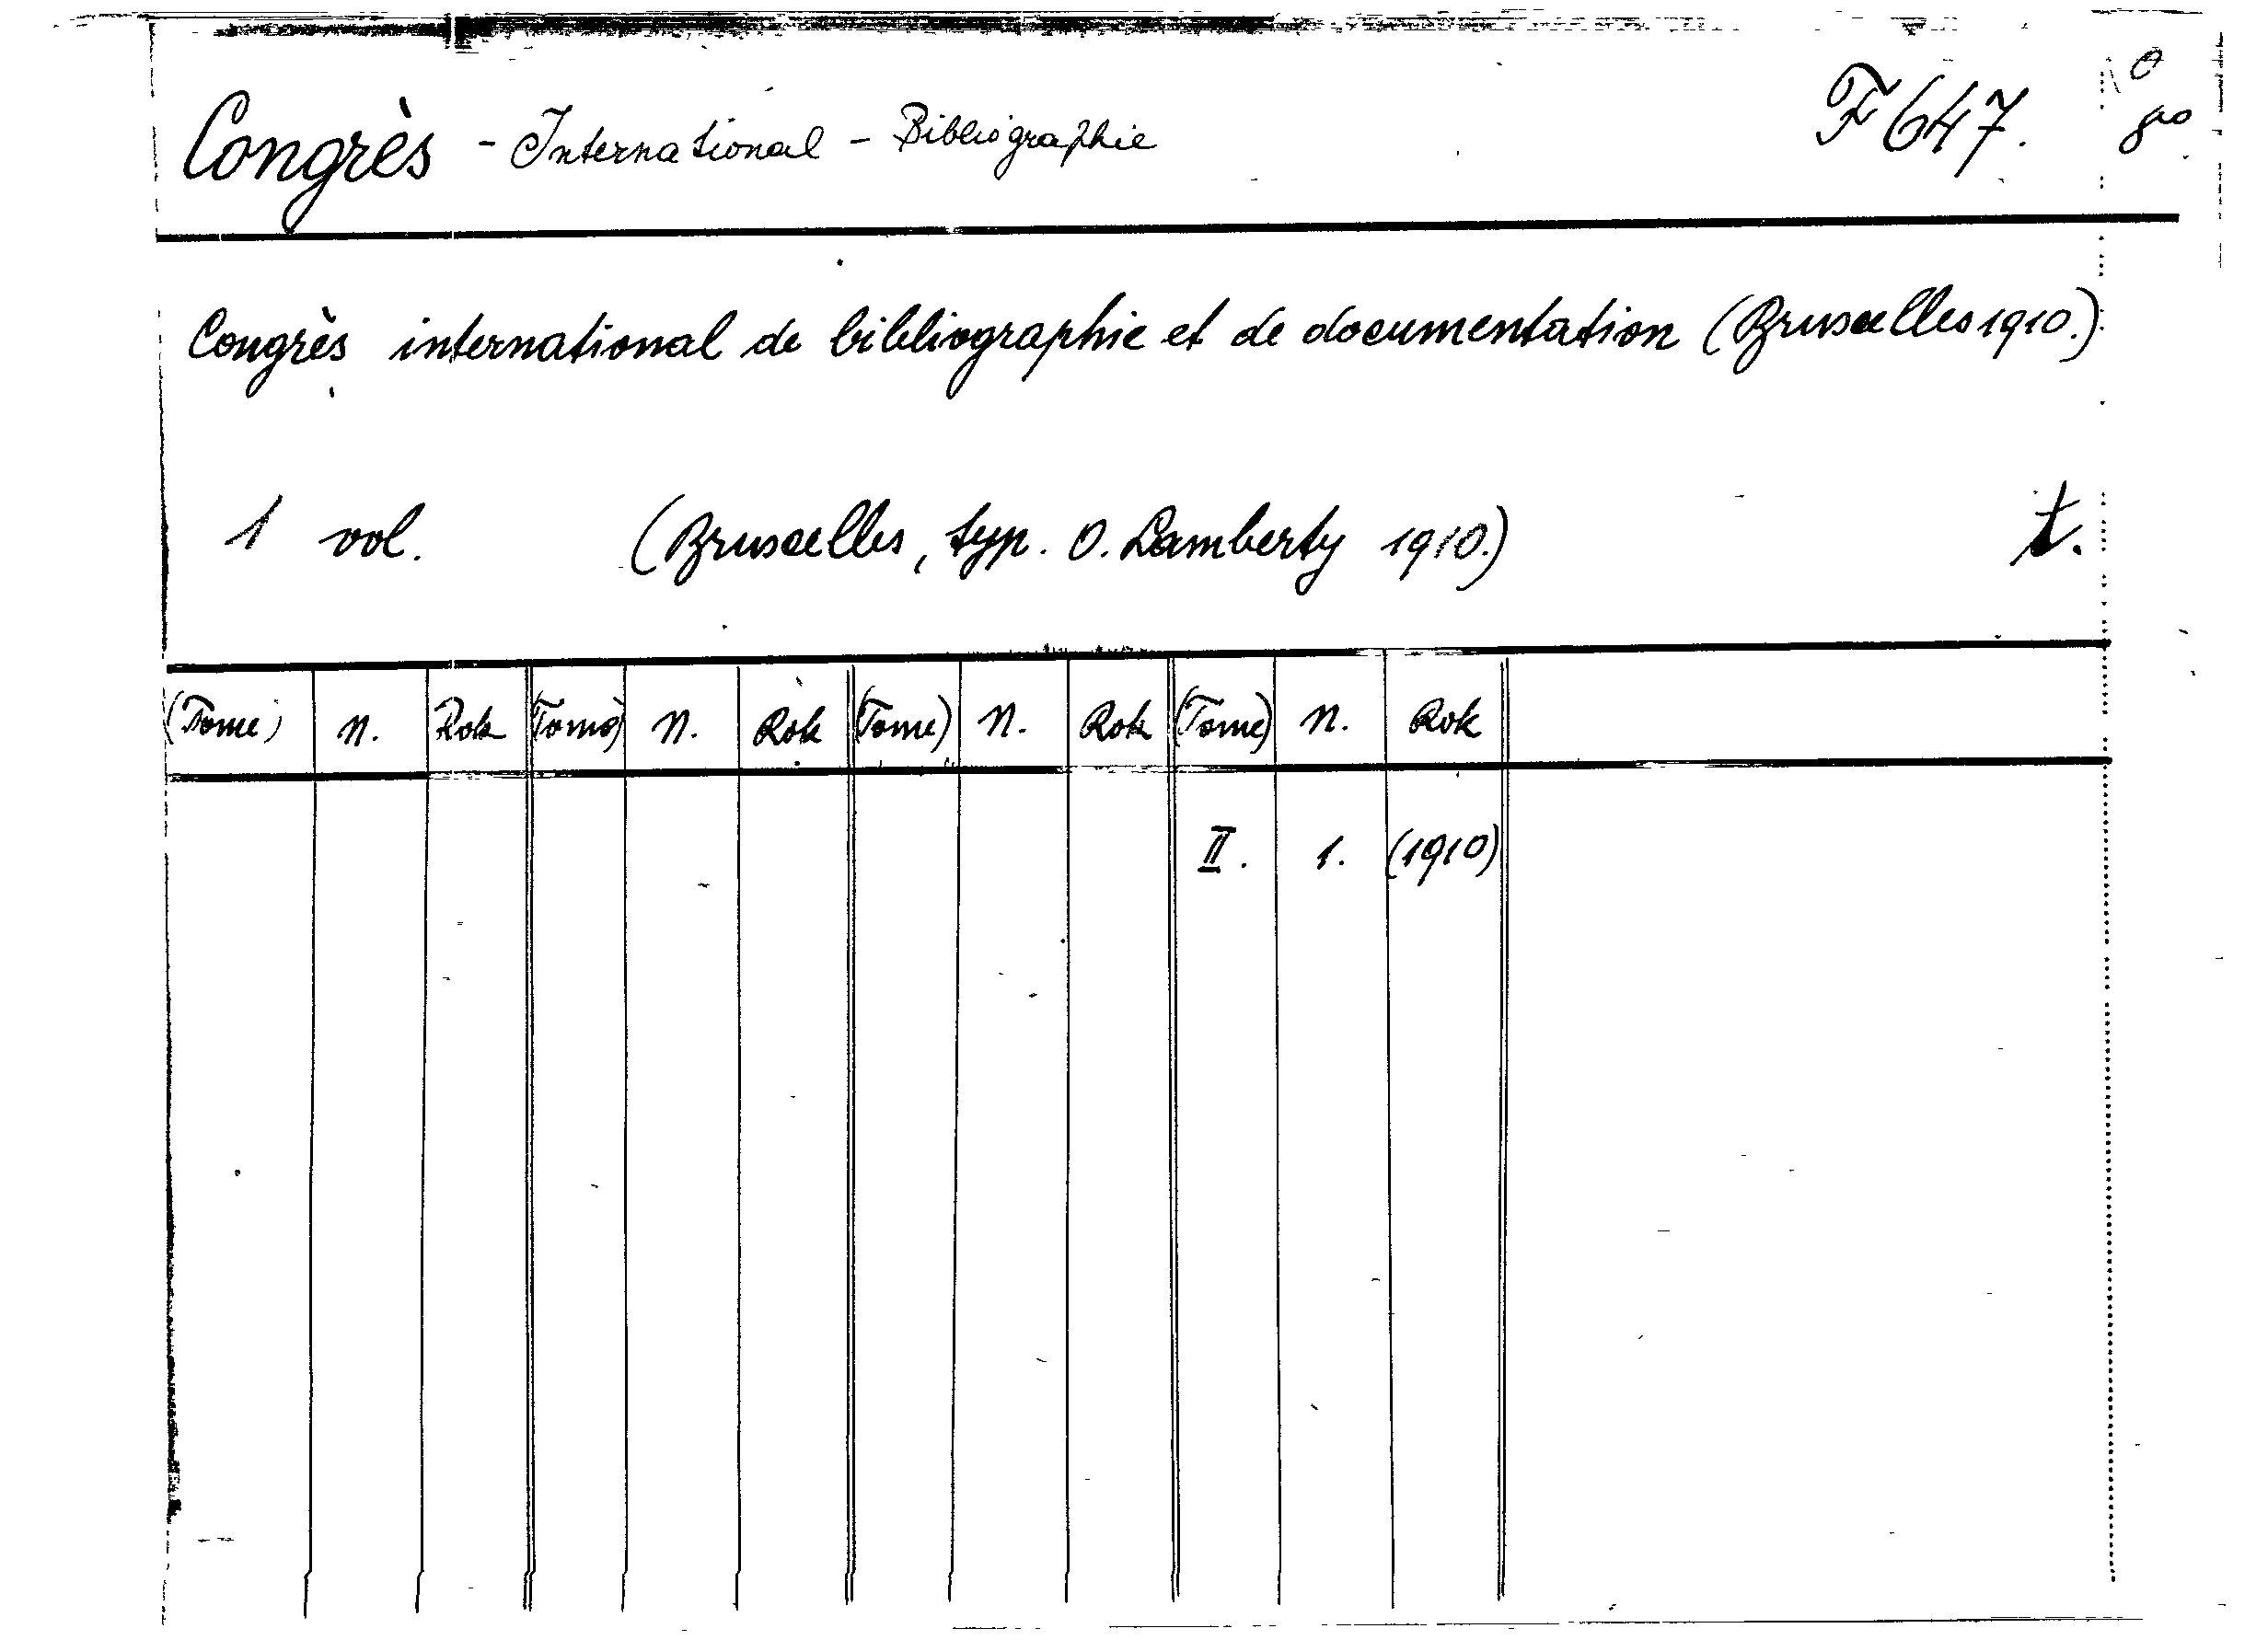 Congrès - International - Bibliographie F 647. 8vo
Congrès international de bibliographie et de documentation (Bruxelles 1910.)
1 vol. (Bruxelles, typ. O. Lamberty 1910.) t.
(Tome) N. Rok (Tome) N. Rok (Tome) N. Rok (Tome) N. Rok
II. 1. (1910)